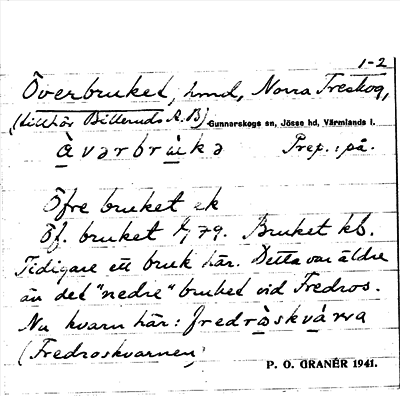 1-2
Överbruket, hmd, Norra Treskog,
(tillhör Billeruds A.B) Gunnarskogs sn, Jösse hd, Värmlands l.
Prep.: på.
Öfre bruket ek
Öf. bruket 79. Bruket kb.
Tidigare ett bruk här. Detta var äldre
än det "nedre" bruket vid Fredros.
Nu kvarn här: fredròskvárna
(Fredroskvarnen)
P. O. GRANÉR 1941.